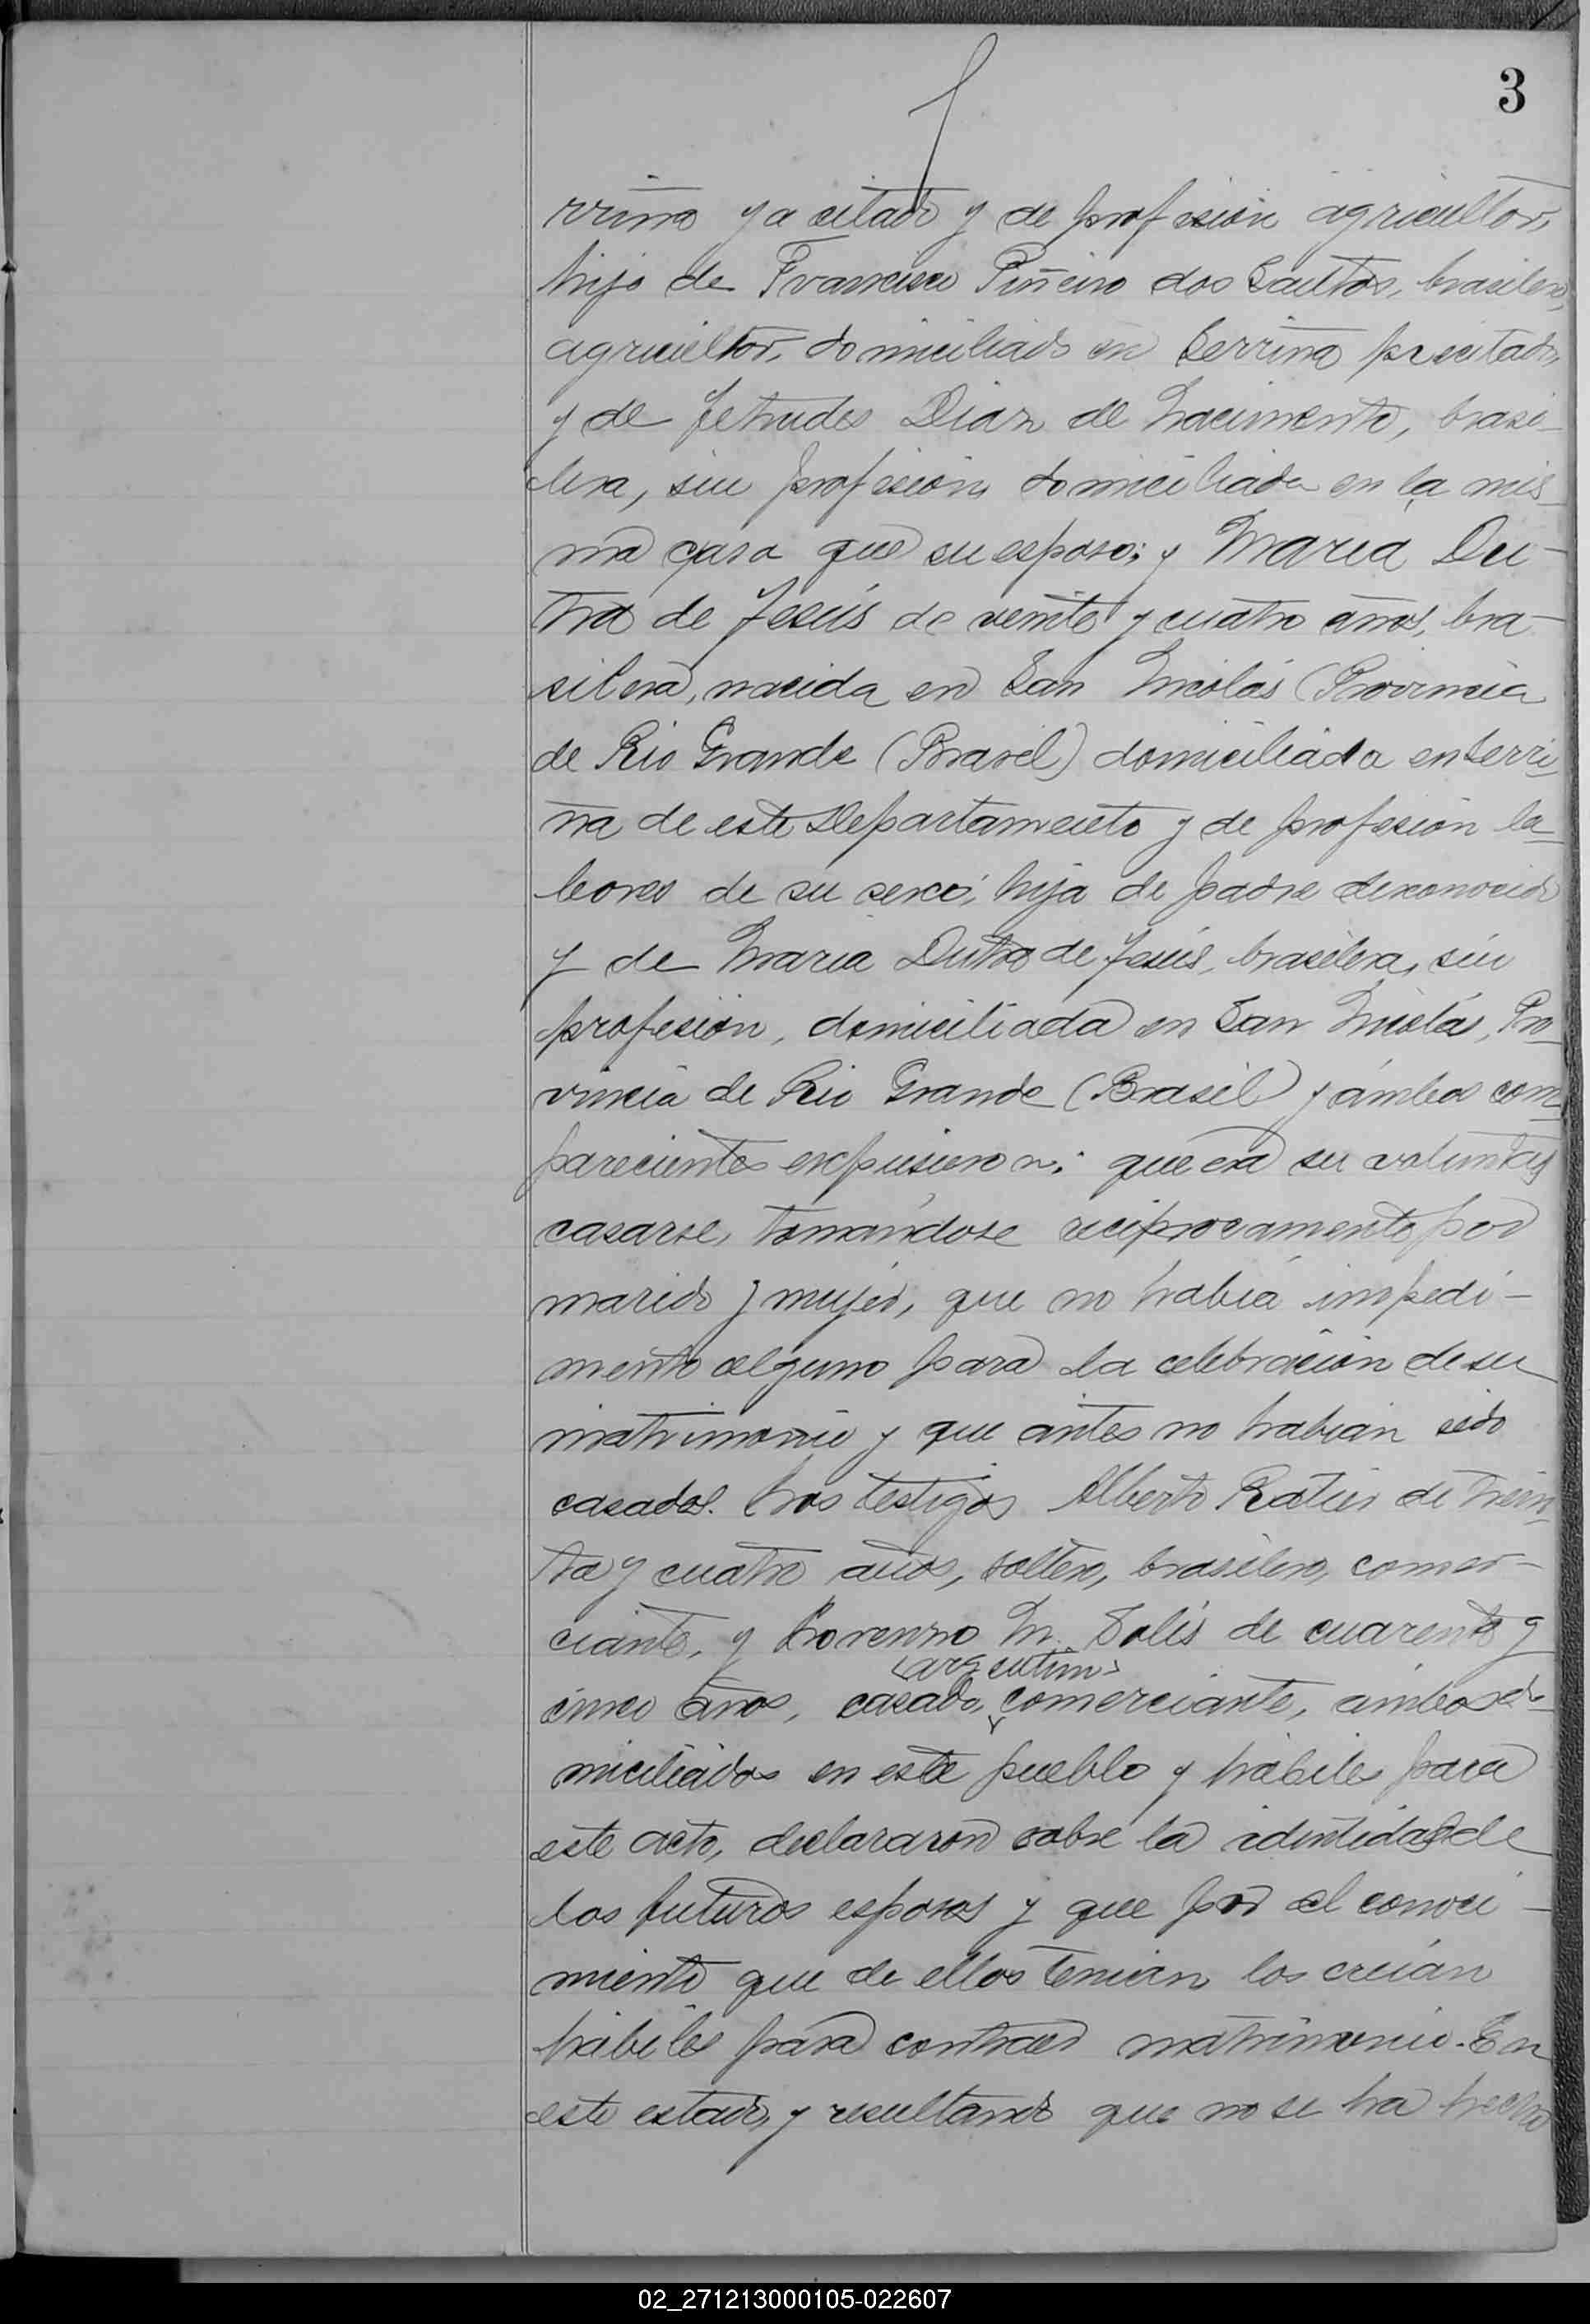 3
rrino ya citado y de profesión agricultor,
hijo de Francisco Piñeiro dos Santos, brasilero,
agricultor, domiciliado en Serrino precitado,
y de Jetrudes Diaz de Nacimento, brasi-
lera, sin profesión, domiciliada en la mis-
ma casa que su esposo; y Maria Du-
tra de Jesús de veinte y cuatro años, bra-
silera, nacida en San Nicolás (Provincia
de Rio Grande (Brasil) domiciliada en Serri-
na de este Departamento y de profesión la-
bores de su sexo, hija de padre desconocido
y de Maria Dutra de Jesús, brasilera, sin
profesión, domiciliada en San Nicolás, Pro-
vincia de Rio Grande (Brasil) y ámbos com-
parecientes expusieron: que era su voluntad
casarse, tomándose reciprocamente por
marido y mujer, que no habia impedi-
mento alguno para la celebración de su
matrimonio y que antes no habian sido
casados. Los testigos Alberto Ratier de trein-
ta y cuatro años, soltero, brasilero, comer-
ciante, y Lorenzo M. Solis de cuarenta y
<argentino>
cinco años, casado, comerciante, ámbos do-
miciliados en este pueblo y hábiles para
este acto, declararon sobre la identidad de
los futuros esposos y que por el conoci-
miento que de ellos tenian los creían
hábiles para contraer matrimonio. En
este estado, y resultando que no se ha hecho
02_271213000105-022607